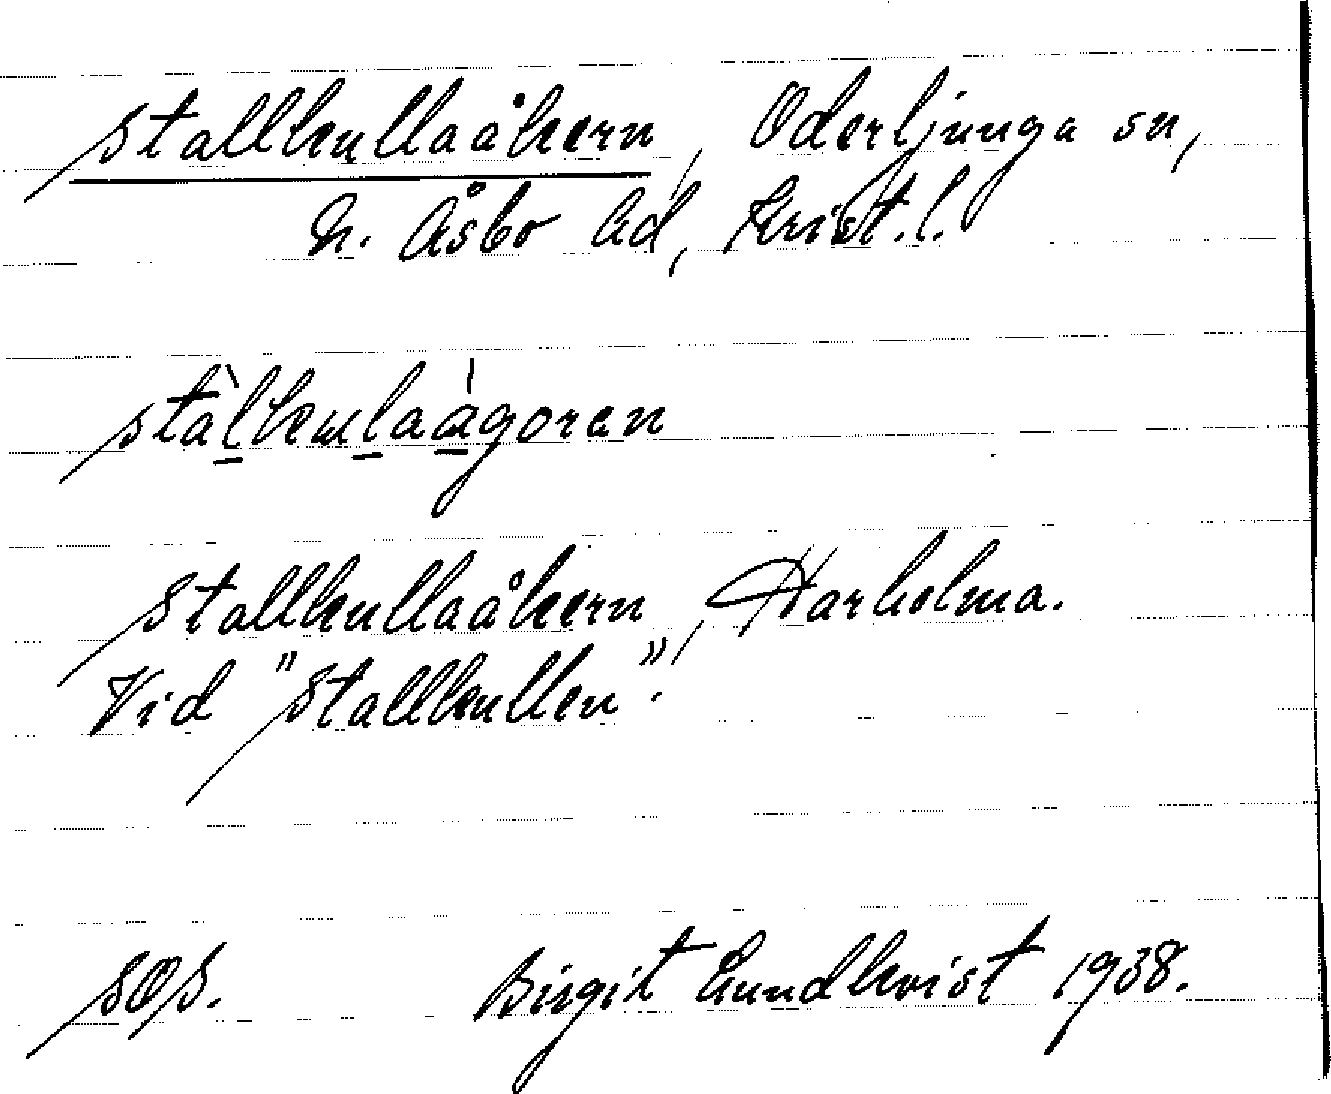 Stallkullaåkern, Oderljunga sn,
N. Åsbo hd, Krist. l.
stàlkulaágoren
Stallkullaåkern, Harholma.
Vid "Stallkullen".
SOS. Birgit Lundkvist 1938.